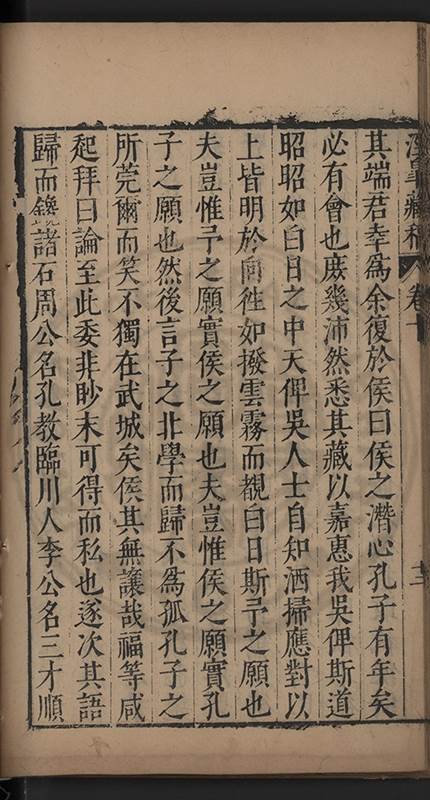 藏稿 卷十
其端君幸爲余復於侯曰侯之潛心孔子有年矣
必有會也庶幾沛然悉其藏以嘉惠我吳俾斯道
昭昭如白日之中天俾吳人士自知洒掃應對以
上皆明於向徃如撥雲霧而覩白日斯予之願也
夫豈惟予之願實侯之願也夫豈惟侯之願實孔
子之願也然後言子之北學而歸不爲孤孔子之
所莞爾而笑不獨在武城矣侯其無讓哉福等咸
起拜曰論至此委非眇末可得而私也遂次其語
歸而鑱諸石周公名孔教臨川人李公名三才順